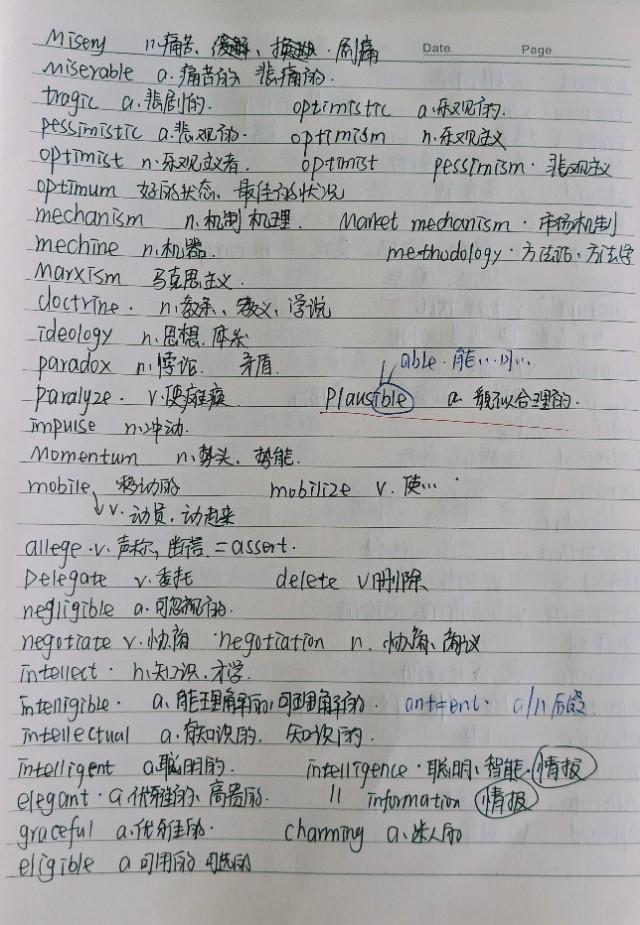 Date Page
Misery n.痛苦、缓解、 剧痛
Miserable a.痛苦的 悲痛的.
tragic a.悲剧的. optimistic a.乐观的.
pessimistic a.悲观的. optimism n.乐观主义
optimist n.乐观主义者. optimist pessimism.悲观主义
optimum 好的状态、最佳的状况
mechanism n.机制 机理. Market mechanism.市场机制
mechine n.机器. methodology.方法论、方法学
Marxism 马克思主义.
doctrine. n.教条、教义、学说
ideology n.思想.体系
paradox n.悖论. 矛盾. able.能…可…
paralyze. v.使瘫痪 plausible a.貌似合理的.
impulse n.冲动.
Momentum n.势头、势能.
mobile 移动的 mobilize v.使…
v.动员,动起来
allege.v.声称, 断言.=assert.
Delegate v.委托 delete v删除
negligible a.可忽视的.
negotiate v.协商 negotiation n.协商、商议
intellect. n.知识.才学.
intelligible. a.能理解的,可理解的. ant=ent. a/n后缀
intellectual a.有知识的. 知识的.
intelligent a.聪明的. intelligence.聪明、智能.情报
elegant.a.优雅的、高贵的. 11 information 情报
graceful a.优雅的. charming a.迷人的
eligible a 可用的 可选的